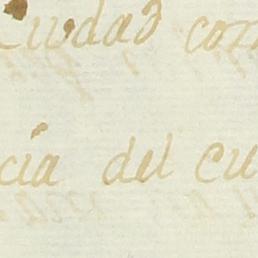 Ciudad con
cia del cu